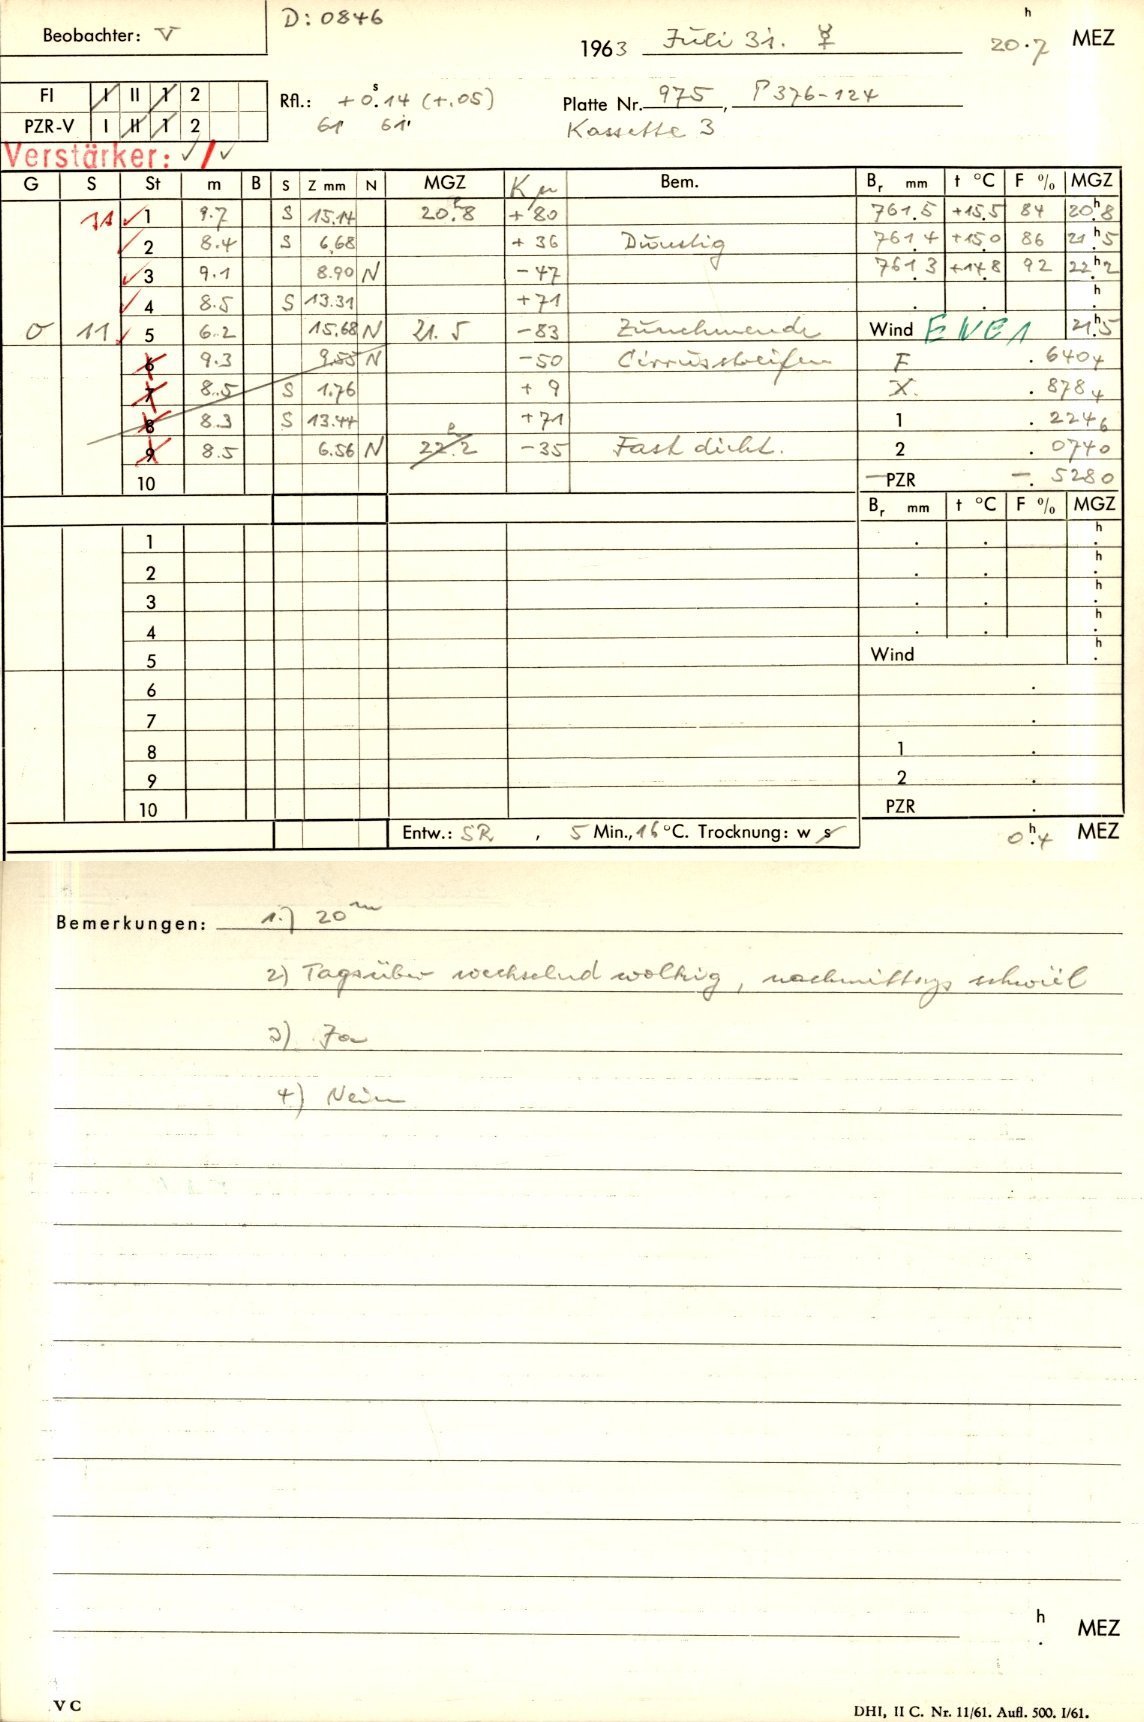 D: 0846
Beobachter: V
1963 Juli 31. ☿ 20h.7 MEZ
FI I II 1 2
Rfl.: +0s.14 (+.05)
Platte Nr. 975, P376-124
PZR-V I II 1 2
61 61
Kassette 3
Verstärker: ✓/✓
G S St m B S Z mm N MGZ Kμ Bem. Br mm t °C F % MGZ
11 ✓ 1 9.7 S 15.14 20h.8 +80 761.5 +15.5 84 20h.8
✓ 2 8.4 S 6.68 +36 Dunstig 761.4 +15.0 86 21h.5
✓ 3 9.1 8.90 N -47 761.3 +14.8 92 22h.2
✓ 4 8.5 S 13.31 +71 . . h.
0 11 ✓ 5 6.2 15.68 N 21.5 -83 Zunehmende Wind ENE1 21h.5
6 9.3 9.55 N -50 Cirrusstreifen F .6404
7 8.5 S 1.76 +9 X. .8784
8 8.3 S 13.44 +71 1 .2246
9 8.5 6.56 N 22.2 -35 Fast dicht. 2 .0740
10 -PZR -.5280
Br mm t °C F % MGZ
1 . . h.
2 . . h.
3 . . h.
4 . . h.
5 Wind h.
6 .
7 .
8 1 .
9 2 .
10 PZR .
Entw.: SR , 5 Min., 16 °C. Trocknung: w s
0h.4 MEZ
Bemerkungen: 1.) 20m
2) Tagsüber wechselnd wolkig, nachmittags schwül
3) Ja
4) Nein
h. MEZ
V C
DHI, II C. Nr. 11/61. Aufl. 500. I/61.